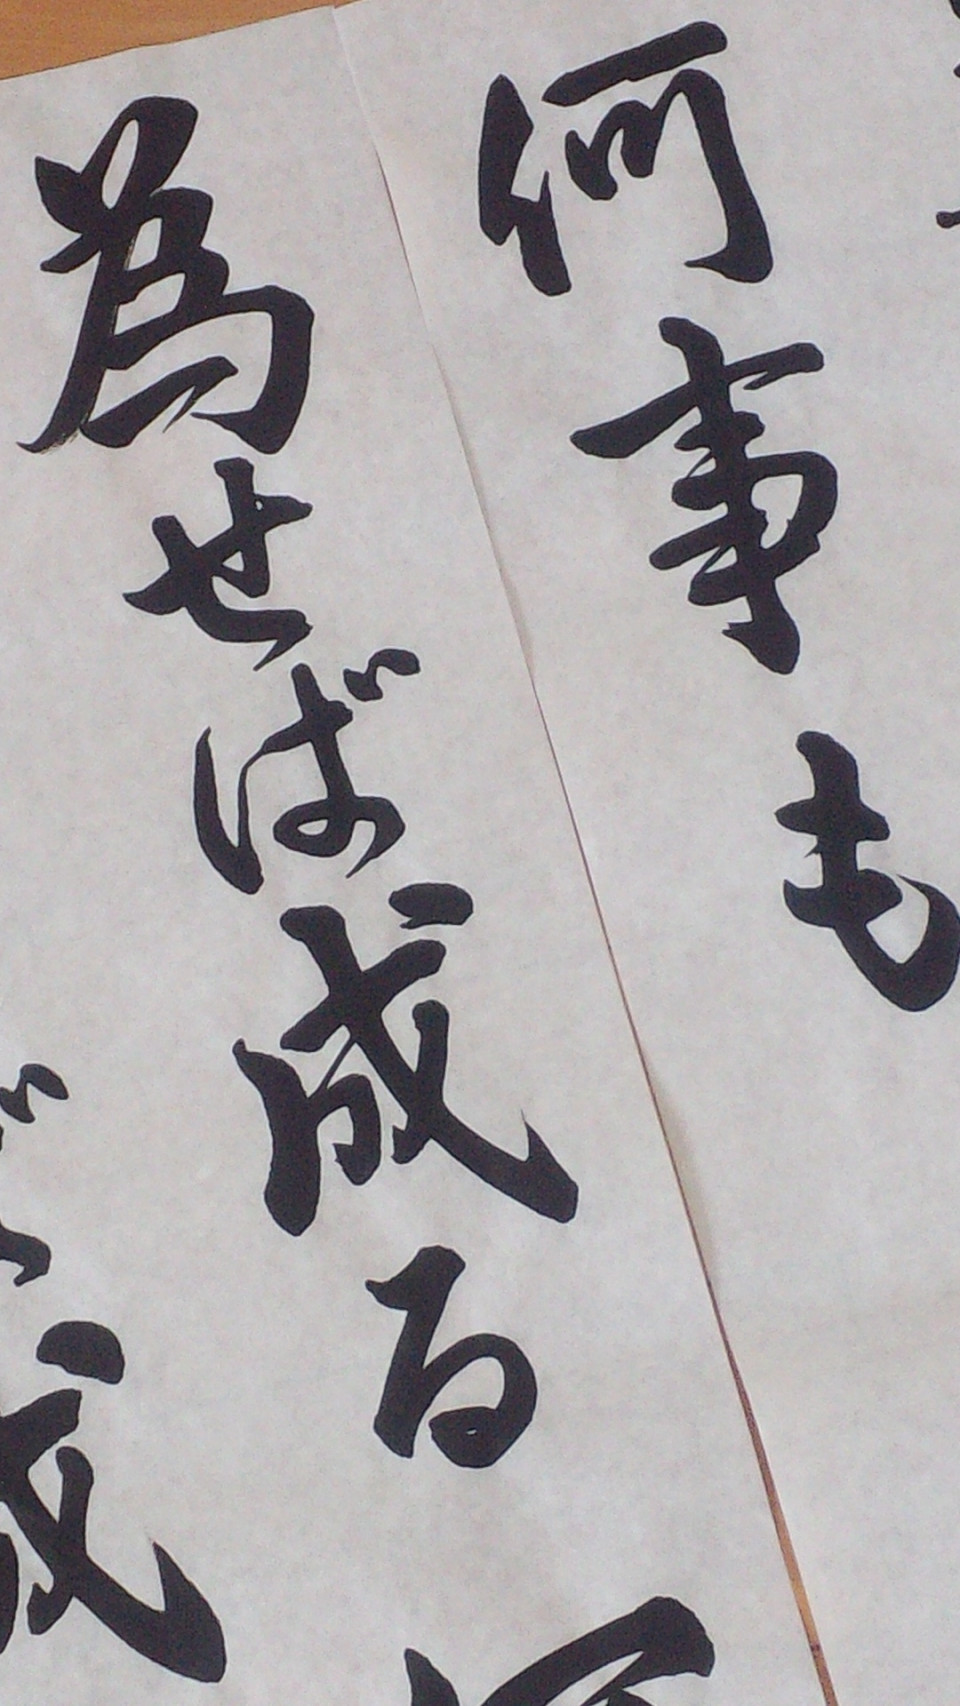 何事も
為せば成る